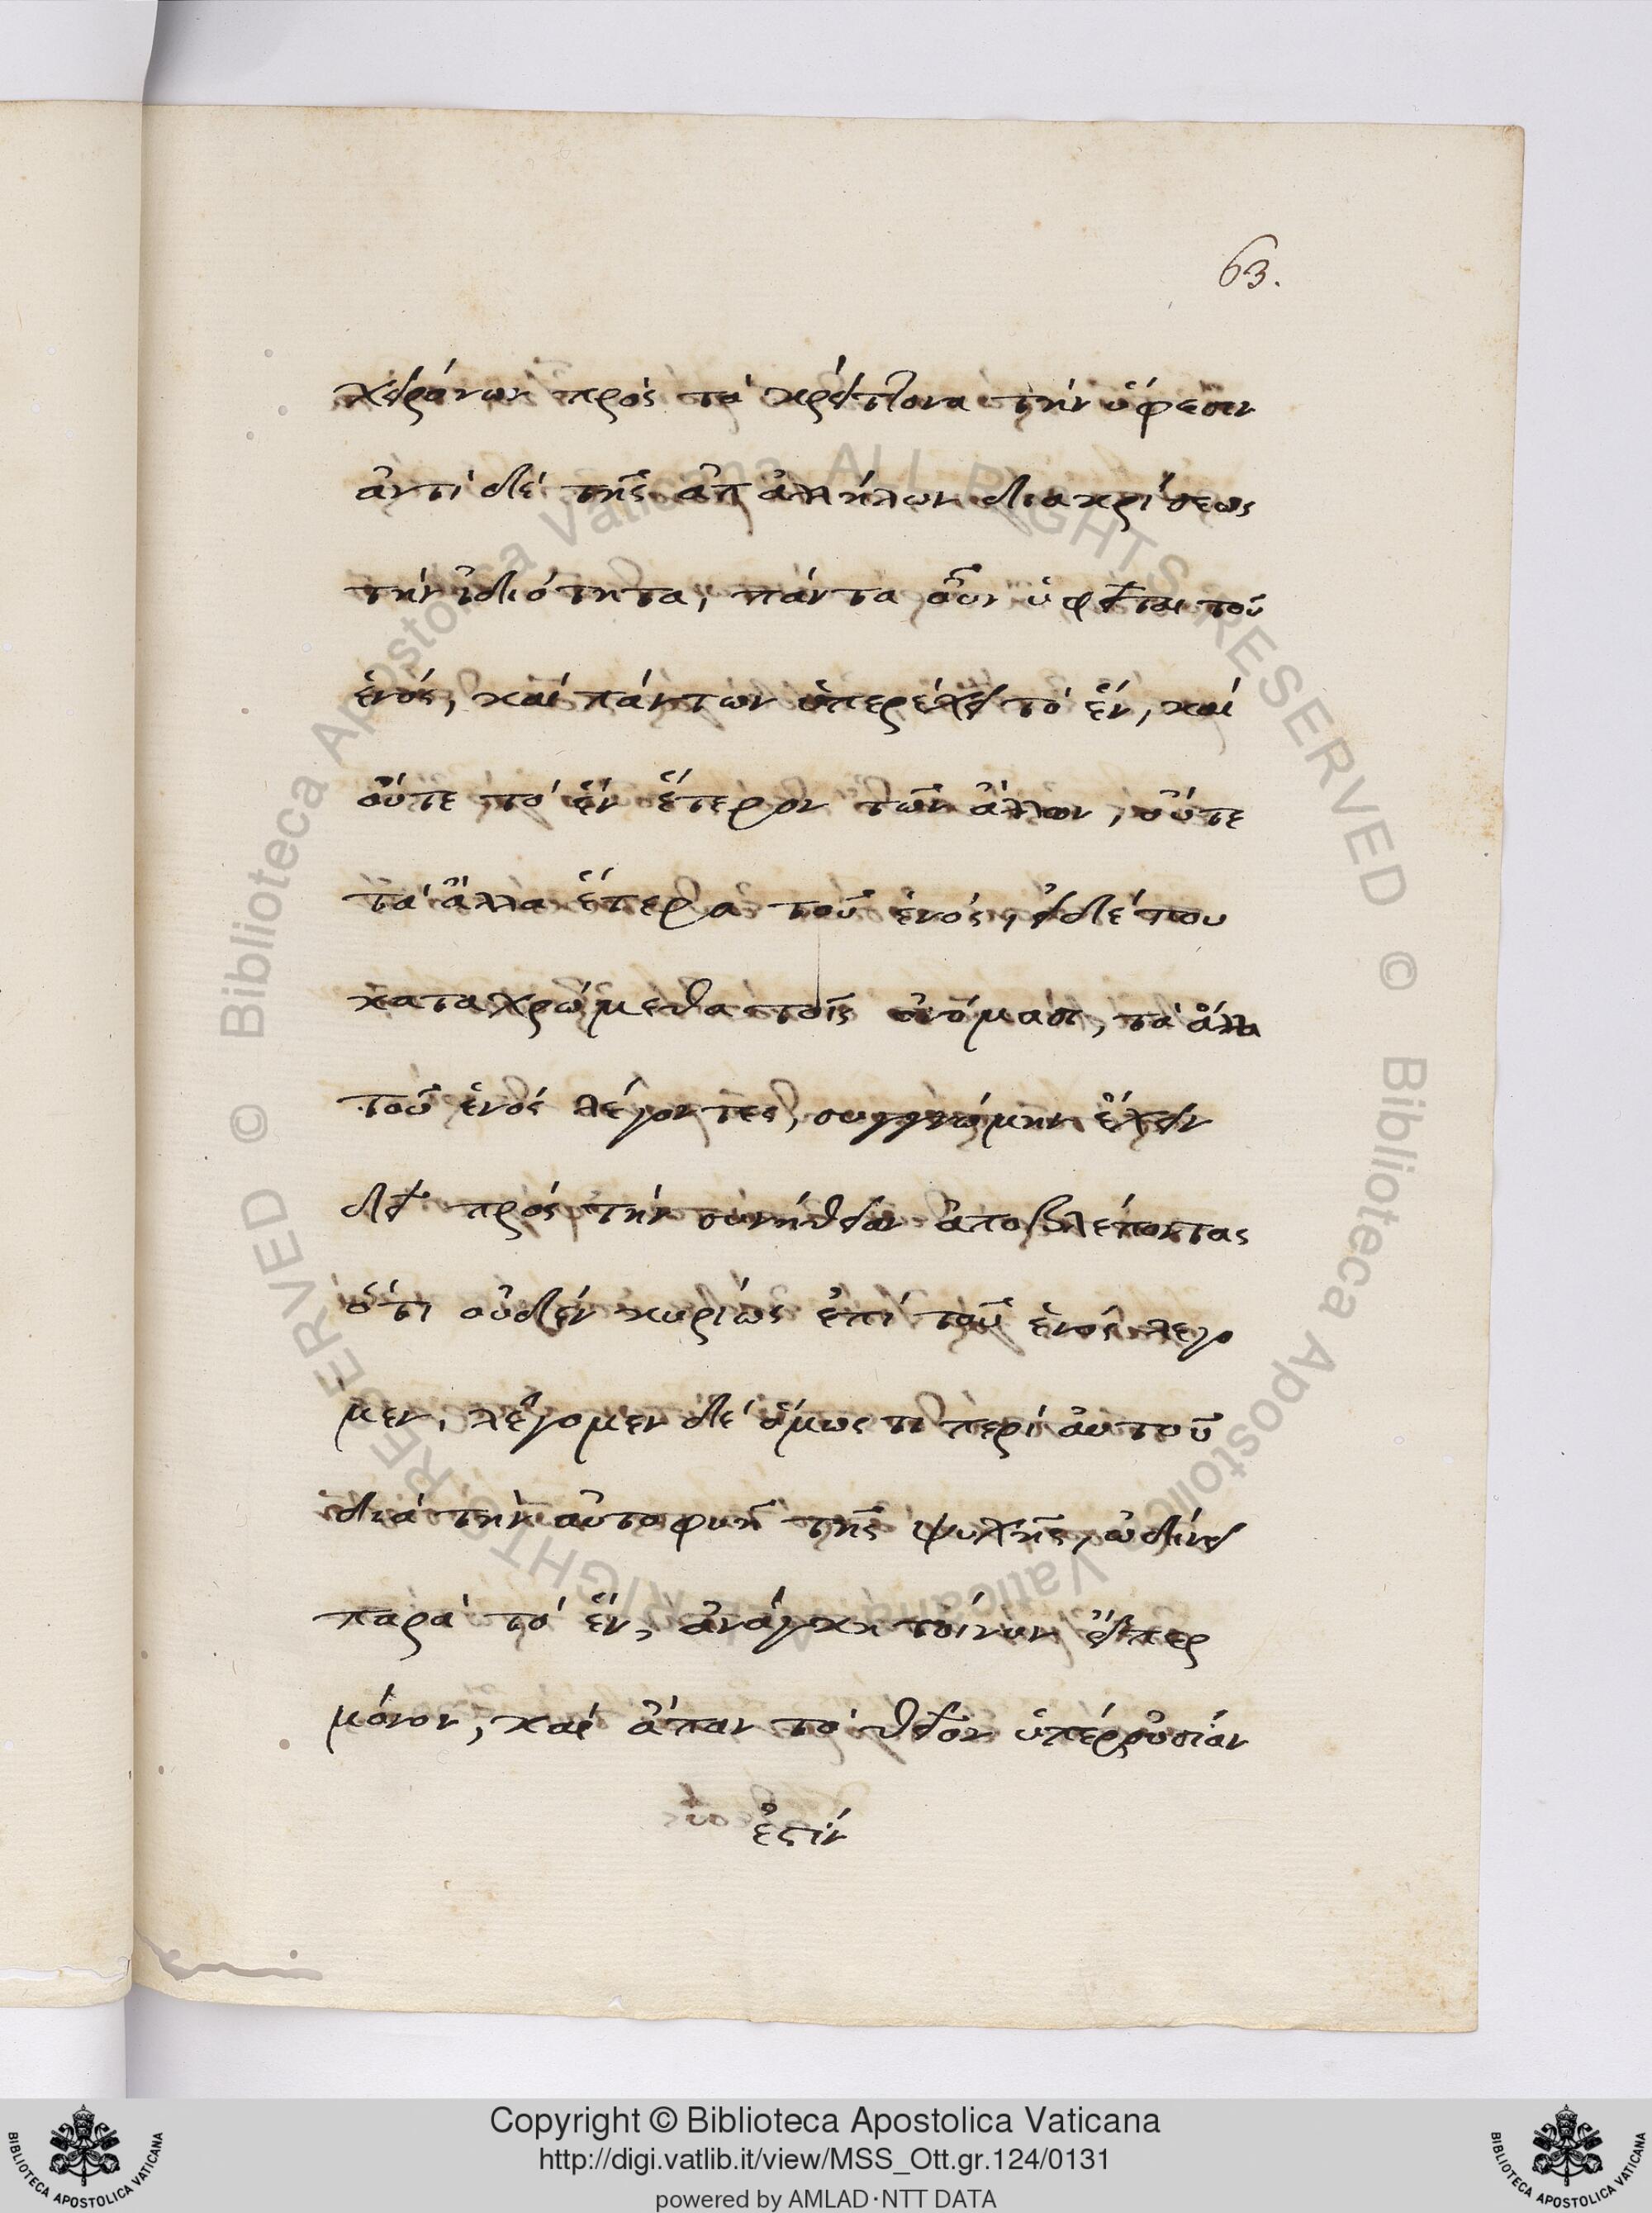 63.
χειρόνων πρὸς τὰ κρείττονα τὴν ὕφεσιν
ἀντὶ δὲ τῆς ἀπ ἀλλήλων διακρίσεως
τὴν ἰδιότητα, πάντα οὖν ὑφεῖται τοῦ
ἑνός, καὶ πάντων ὑπερέχει τὸ ἕν, καὶ
οὔτε τὸ ἓν ἕτερον τῶν ἄλλων, οὔτε
τὰ ἄλλα ἕτερα τοῦ ἑνός, εἰ δέ που
καταχρώμεθα τοῖς ὀνόμασι, τὰ ἄλλα
τοῦ ἑνὸς λέγοντες, συγγνώμην ἔχειν
δεῖ πρὸς τὴν συνήθειαν ἀποβλέποντας
ὅτι οὐδὲν κυρίως ἐπὶ τοῦ ἑνὸς λεγο
μεν, λέγομεν δὲ ὅμως τι περὶ αὐτοῦ
διὰ τὴν αὐτοφυῆ τῆς ψυχῆς, ὠδῖνα
παρὰ τὸ ἕν, ἀνάγκη τοίνυν εἴπερ
μόνον, καὶ ἅπαν τὸ θεῖον ὑπερουσίαν
ἐστίν
© Biblioteca Apostolica Vaticana ALL RIGHTS RESERVED
© Biblioteca Apostolica Vaticana ALL RIGHTS RESERVED
Copyright © Biblioteca Apostolica Vaticana
http://digi.vatlib.it/view/MSS_Ott.gr.124/0131
powered by AMLAD·NTT DATA
BIBLIOTECA APOSTOLICA VATICANA
BIBLIOTECA APOSTOLICA VATICANA